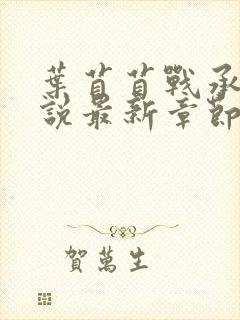 葉苜苜戰承
說最新章節
賀萬生